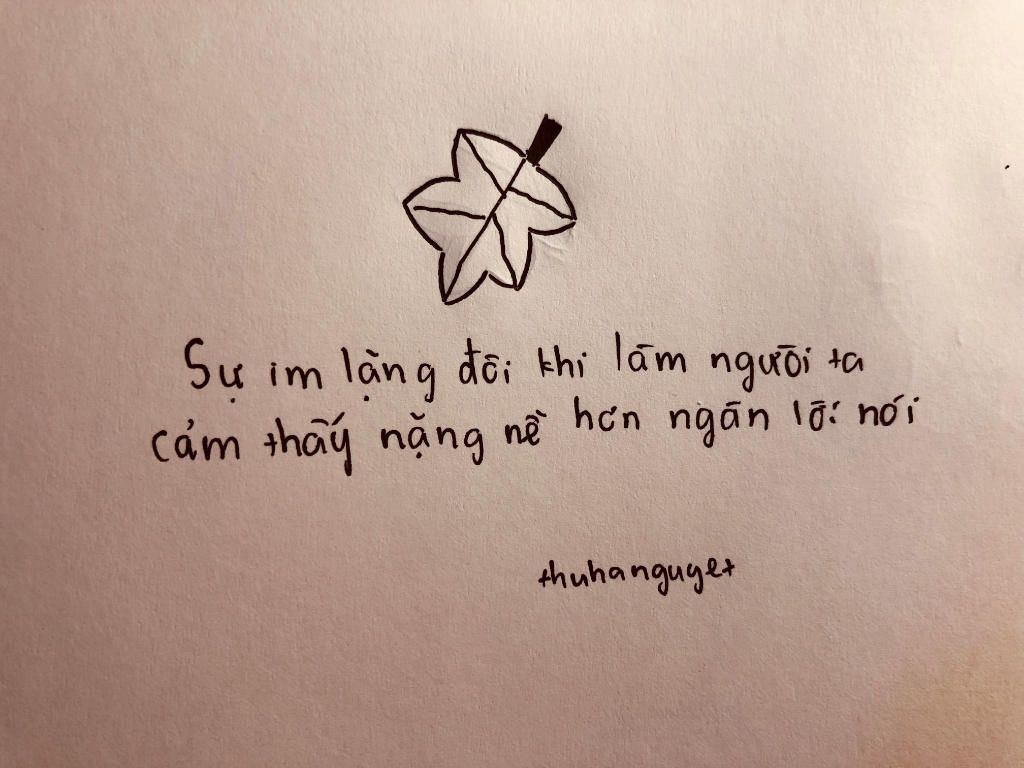 Sự im lặng đôi khi làm người ta
cảm thấy nặng nề hơn ngàn lời nói
thuhanguyet